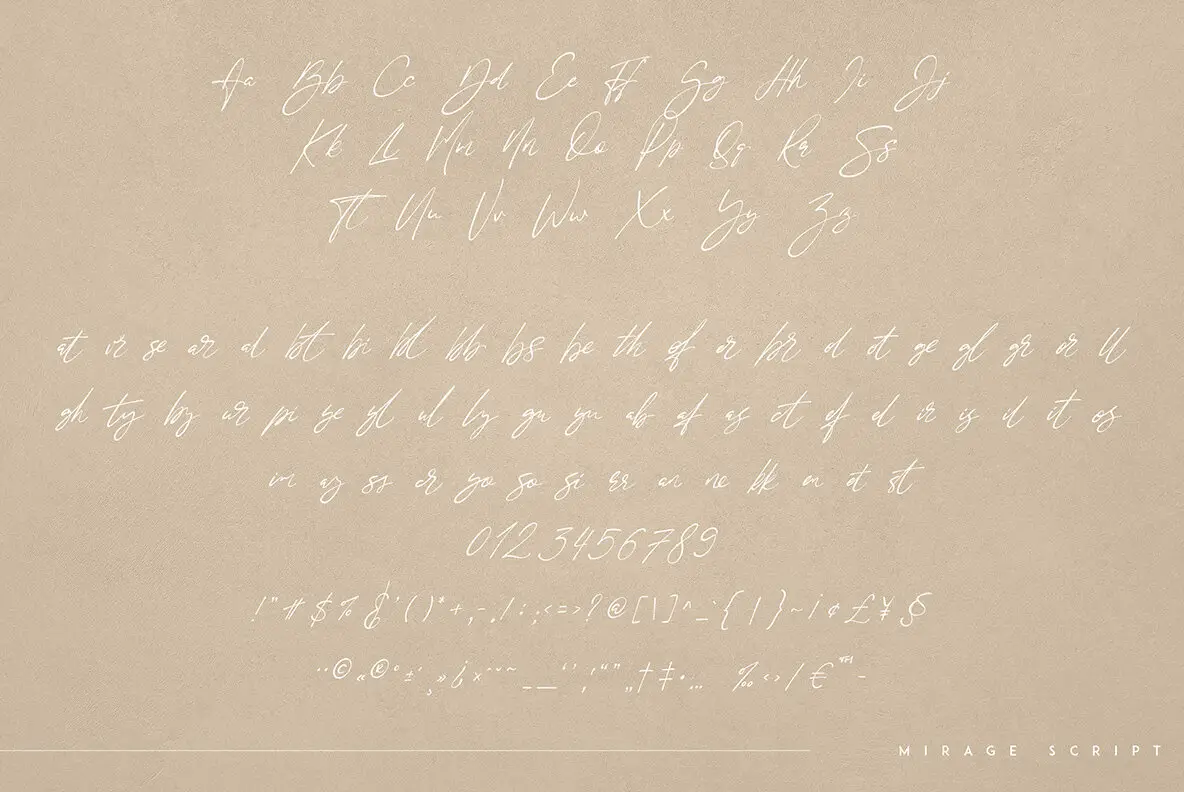 Aa Bb Cc Dd Ee Ff Gg Hh Ii Jj
Kk Ll Mm Nn Oo Pp Qq Rr Ss
Tt Uu Vv Ww Xx Yy Zz
at ir se ar al bt bi bl bb bs be th of or br ol ot ge gl gr or ll
gh ty by ur pi ye yl ul ly gu yu ab af as ct ef el ir is il it os
im ay ss er yo so si an ne bk en et st
0123456789
!"#$%&'()*+,-./:;<=>?@[\]^_`{|}~¡¢£¥§
¨©«®°±´¸»¿רּ – — ‘ ’ ‚ “ ” „ † ‡ • … ‰ ‹ › / € ™ −
MIRAGE SCRIPT